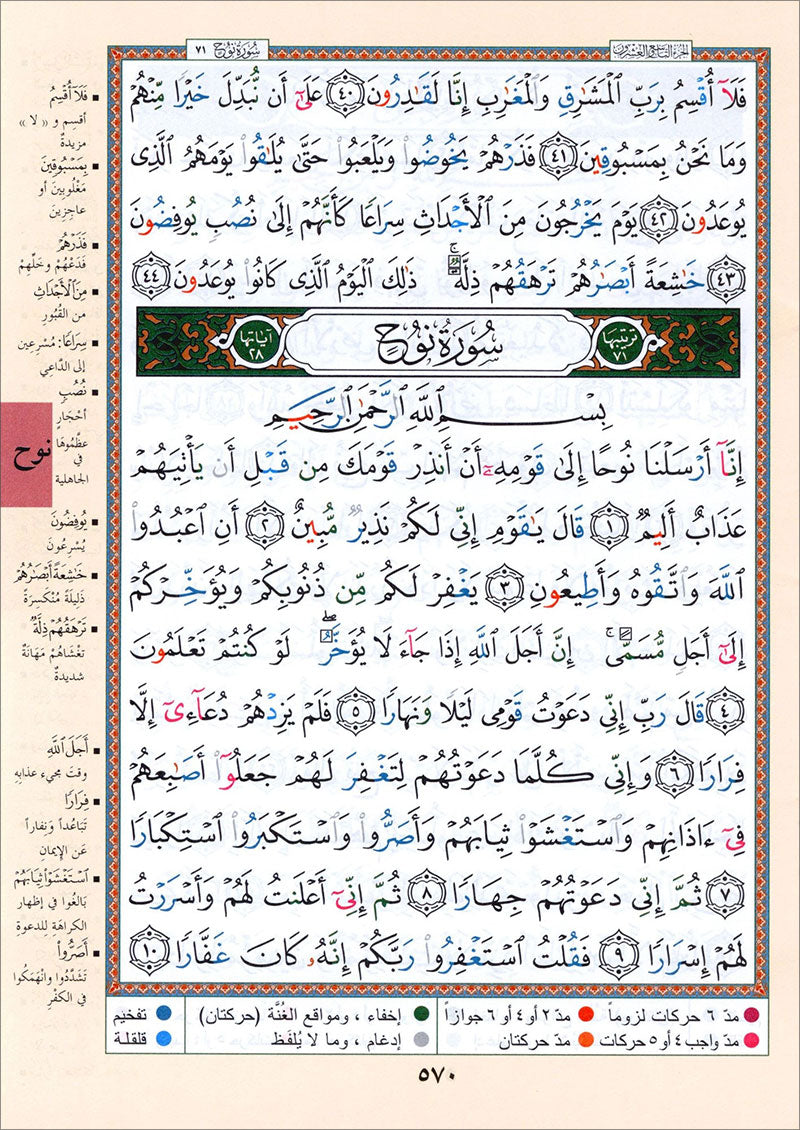 سُورَةُ نُوحٍ ٧١
الجزء التاسع والعشرون
فَلَآ أُقْسِمُ بِرَبِّ ٱلْمَشَٰرِقِ وَٱلْمَغَٰرِبِ إِنَّا لَقَٰدِرُونَ ٤٠ عَلَىٰٓ أَن نُّبَدِّلَ خَيْرًا مِّنْهُمْ
وَمَا نَحْنُ بِمَسْبُوقِينَ ٤١ فَذَرْهُمْ يَخُوضُوا۟ وَيَلْعَبُوا۟ حَتَّىٰ يُلَٰقُوا۟ يَوْمَهُمُ ٱلَّذِى
يُوعَدُونَ ٤٢ يَوْمَ يَخْرُجُونَ مِنَ ٱلْأَجْدَاثِ سِرَاعًا كَأَنَّهُمْ إِلَىٰ نُصُبٍ يُوفِضُونَ
٤٣ خَٰشِعَةً أَبْصَٰرُهُمْ تَرْهَقُهُمْ ذِلَّةٌ ۚ ذَٰلِكَ ٱلْيَوْمُ ٱلَّذِى كَانُوا۟ يُوعَدُونَ ٤٤
ترتيبها ٧١ سُورَةُ نُوحٍ آياتها ٢٨
بِسْمِ ٱللَّهِ ٱلرَّحْمَٰنِ ٱلرَّحِيمِ
إِنَّآ أَرْسَلْنَا نُوحًا إِلَىٰ قَوْمِهِۦٓ أَنْ أَنذِرْ قَوْمَكَ مِن قَبْلِ أَن يَأْتِيَهُمْ
عَذَابٌ أَلِيمٌ ١ قَالَ يَٰقَوْمِ إِنِّى لَكُمْ نَذِيرٌ مُّبِينٌ ٢ أَنِ ٱعْبُدُوا۟
ٱللَّهَ وَٱتَّقُوهُ وَأَطِيعُونِ ٣ يَغْفِرْ لَكُم مِّن ذُنُوبِكُمْ وَيُؤَخِّرْكُمْ
إِلَىٰٓ أَجَلٍ مُّسَمًّى ۚ إِنَّ أَجَلَ ٱللَّهِ إِذَا جَآءَ لَا يُؤَخَّرُ ۖ لَوْ كُنتُمْ تَعْلَمُونَ
٤ قَالَ رَبِّ إِنِّى دَعَوْتُ قَوْمِى لَيْلًا وَنَهَارًا ٥ فَلَمْ يَزِدْهُمْ دُعَآءِىٓ إِلَّا
فِرَارًا ٦ وَإِنِّى كُلَّمَا دَعَوْتُهُمْ لِتَغْفِرَ لَهُمْ جَعَلُوٓا۟ أَصَٰبِعَهُمْ
فِىٓ ءَاذَانِهِمْ وَٱسْتَغْشَوْا۟ ثِيَابَهُمْ وَأَصَرُّوا۟ وَٱسْتَكْبَرُوا۟ ٱسْتِكْبَارًا
٧ ثُمَّ إِنِّى دَعَوْتُهُمْ جِهَارًا ٨ ثُمَّ إِنِّىٓ أَعْلَنتُ لَهُمْ وَأَسْرَرْتُ
لَهُمْ إِسْرَارًا ٩ فَقُلْتُ ٱسْتَغْفِرُوا۟ رَبَّكُمْ إِنَّهُۥ كَانَ غَفَّارًا ١٠
فَلَآ أُقْسِمُ
أقسم و « لا »
مزيدةٌ
بِمَسْبُوقِينَ
مَغْلُوبينَ أو
عاجزينَ
فَذَرْهُمْ
فَدَعْهُمْ وخَلِّهِمْ
مِنَ ٱلْأَجْدَاثِ
من القُبُورِ
سِرَاعًا: مُسْرِعين
إلى الدَّاعِي
نُصُبٍ
أحْجَارٍ
عظَّمُوهَا
في
الجاهلية
يُوفِضُونَ
يُسْرِعُونَ
خَٰشِعَةً أَبْصَٰرُهُمْ
ذَليلَةً مُنْكَسِرَةً
تَرْهَقُهُمْ ذِلَّةٌ
تغْشَاهُمْ مَهَانَةٌ
شديدةٌ
أَجَلَ ٱللَّهِ
وقتَ مجيء عذابِهِ
فِرَارًا
تَبَاعُداً ونِفَاراً
عَن الإيمانِ
ٱسْتَغْشَوْا۟ ثِيَابَهُمْ
بَالَغُوا في إظهار
الكراهَةِ لِلدعوةِ
أَصَرُّوا۟
تَشَدَّدُوا وانْهَمَكُوا
في الكفْرِ
نوح
مدّ ٦ حركات لزوماً مدّ ٢ أو ٤ أو ٦ جوازاً إخفاء ، ومواقع الغُنَّة (حركتان) تفخيم
مدّ واجب ٤ أو ٥ حركات مدّ حركتان إدغام ، وما لا يُلفَظ قلقلة
٥٧٠